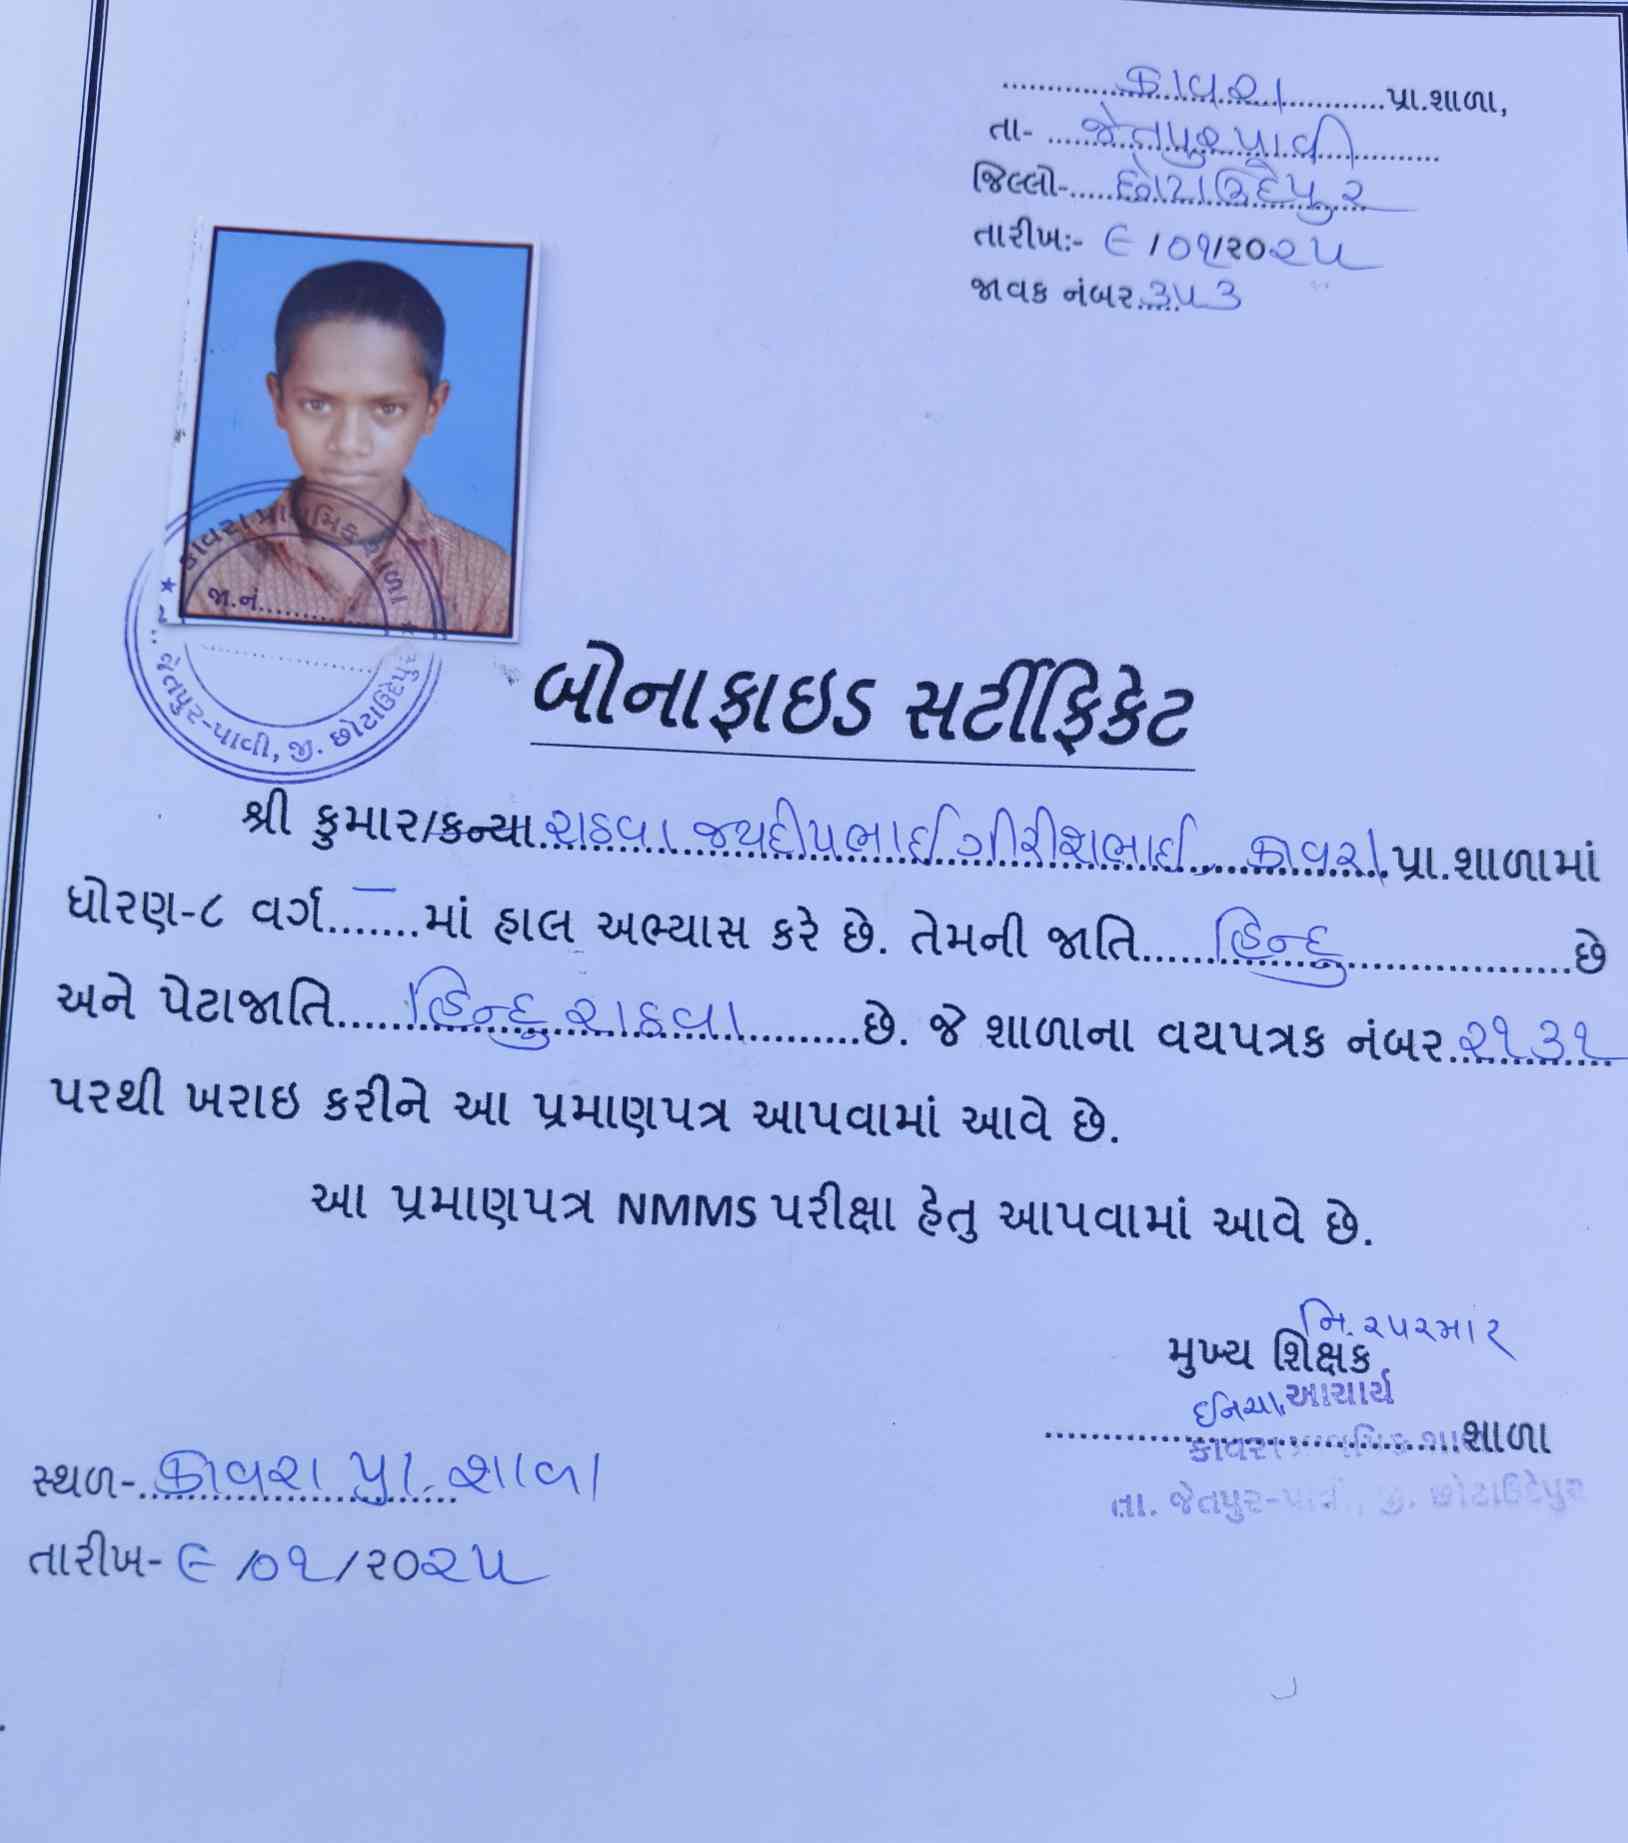 કાવરા પ્રા.શાળા,
તા- જેતપુર પાવી
જિલ્લો- છોટાઉદેપુર
તારીખઃ- ૯/૦૧/૨૦૨૫
જાવક નંબર ૩૫૩
કાવરા પ્રાથમિક શાળા
જા.નં.
જેતપુર-પાવી, જી. છોટાઉદેપુર
બોનાફાઇડ સર્ટીફિકેટ
શ્રી કુમાર/કન્યા રાઠવા જયદીપભાઈ ગીરીશભાઈ, કાવરા પ્રા.શાળામાં
ધોરણ-૮ વર્ગ - માં હાલ અભ્યાસ કરે છે. તેમની જાતિ હિન્દુ છે
અને પેટાજાતિ હિન્દુ રાઠવા છે. જે શાળાના વયપત્રક નંબર ૨૧૩૧
પરથી ખરાઇ કરીને આ પ્રમાણપત્ર આપવામાં આવે છે.
આ પ્રમાણપત્ર NMMS પરીક્ષા હેતુ આપવામાં આવે છે.
નિ.૨પરમાર
મુખ્ય શિક્ષક
ઇનચા.આચાર્ય
કાવરા પ્રાથમિક શાળા
શાળા
તા. જેતપુર-પાવી, જી. છોટાઉદેપુર
સ્થળ- કાવરા પ્રા. શાળા
તારીખ- ૯/૦૧/૨૦૨૫